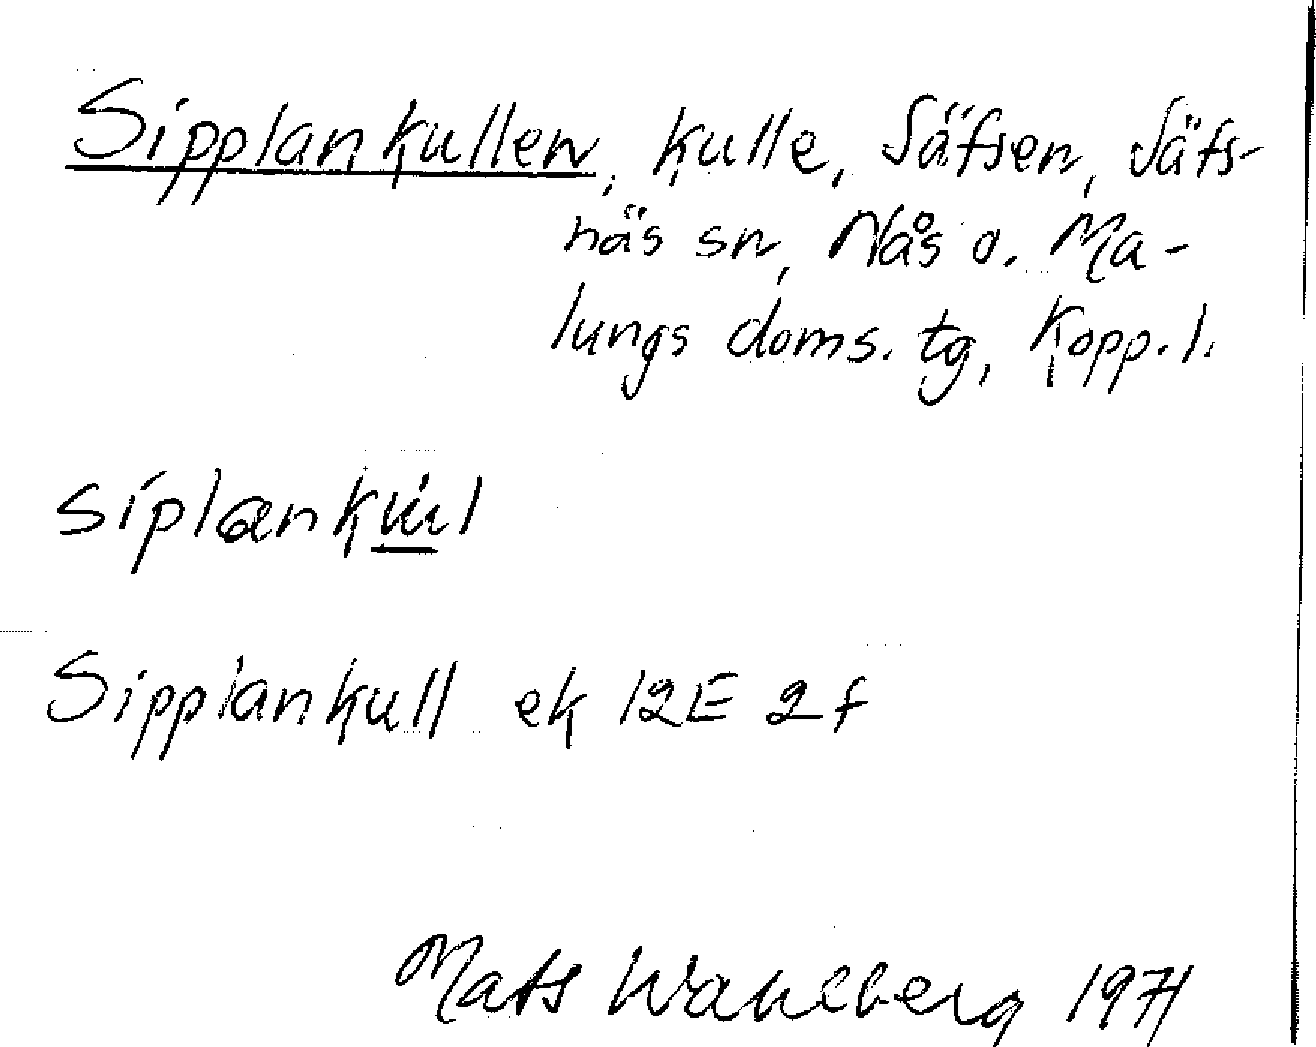 Sipplankullen, kulle, Säfsen, Säfs-
näs sn, Nås o. Ma-
lungs doms. tg, Kopp. l.
Sipplankull ek 12E 2f
Mats Wahlberg 1971